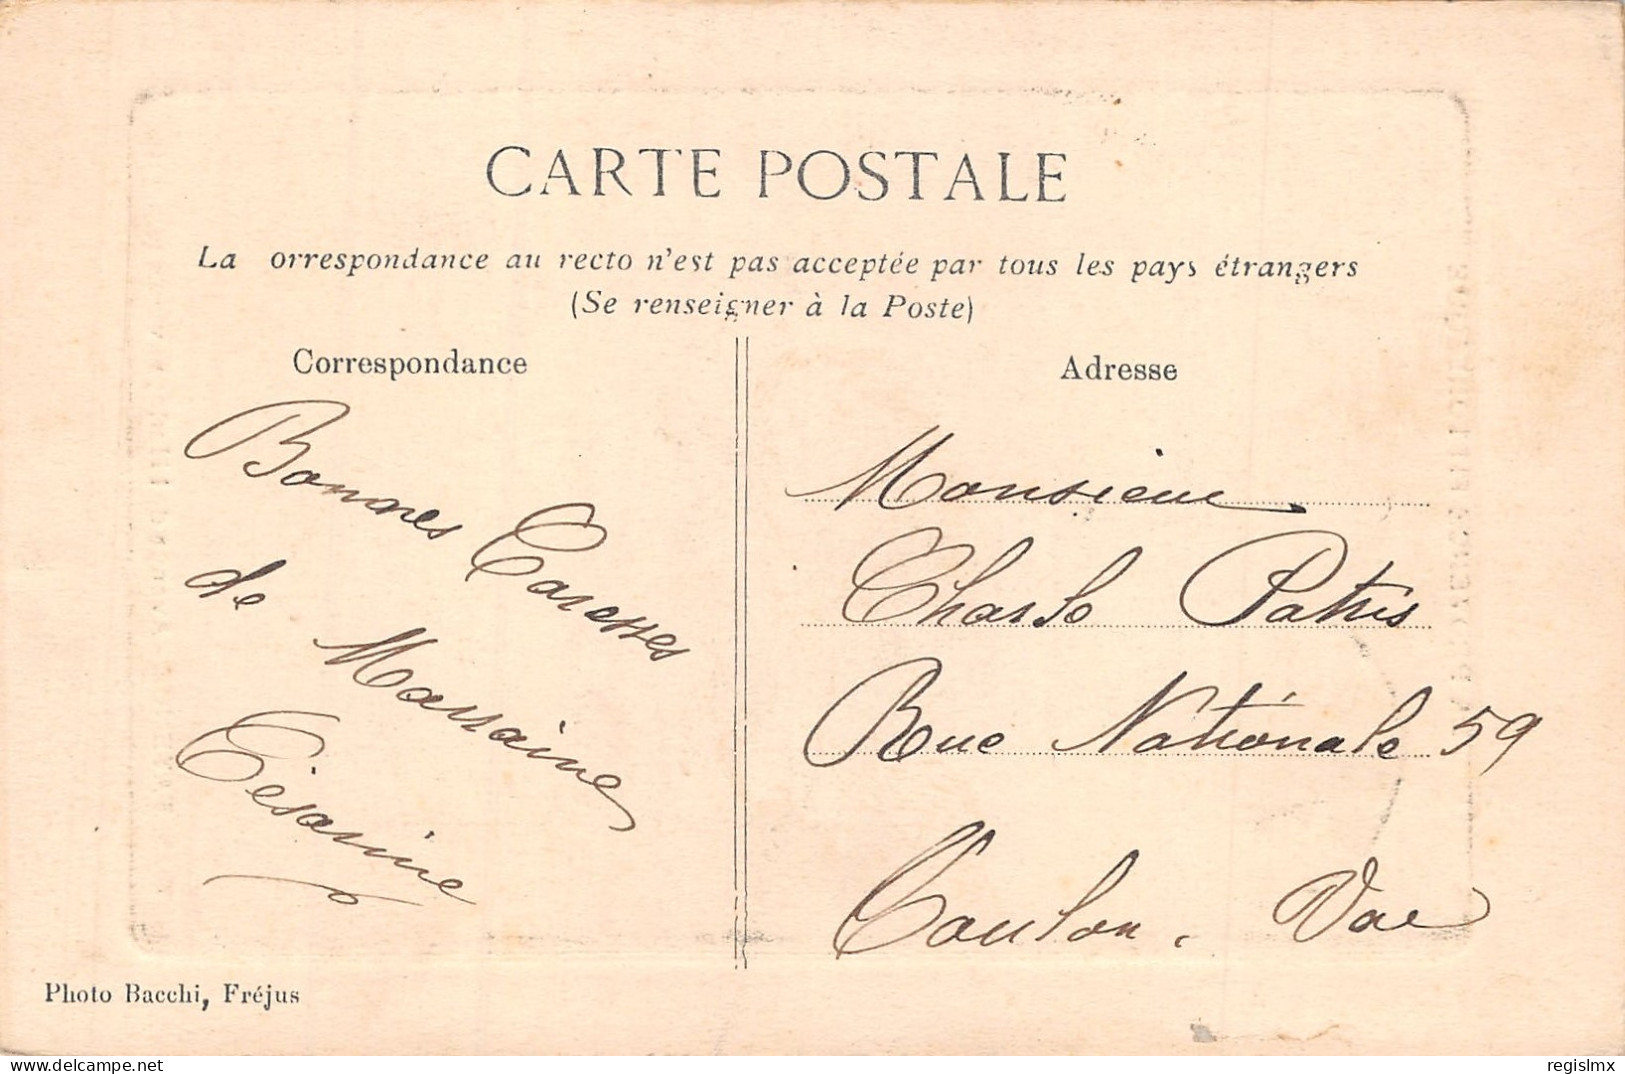 CARTE POSTALE
La orrespondance au recto n'est pas acceptée par tous les pays étrangers
(Se renseigner à la Poste)
Correspondance
Bonnes Caresses
de Marraine
Césarine
Adresse
Monsieur
Charle Patris
Rue Nationale 59
Toulon. Var
Photo Bacchi, Fréjus
delcampe.net
regislmx